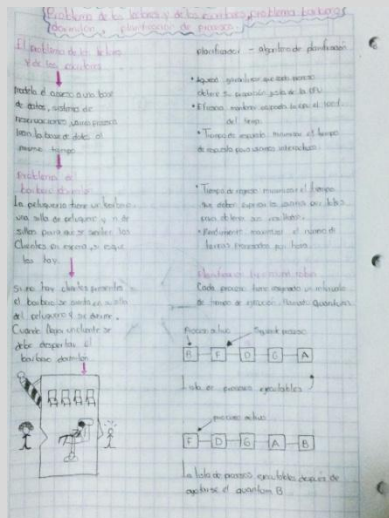 Problema de los lectores y de los escritores, problema barbero
dormilón, planificación de procesos
El problema de los lectores
y de los escritores
modela el acceso a una base
de datos, sistema de
reservaciones, varios procesos
leen la base de datos al
mismo tiempo
Problema del
barbero dormilón
La peluquería tiene un barbero,
una silla de peluquero y n de
sillas para que se sienten los
clientes en espera, si es que
los hay.
Si no hay clientes presentes
el barbero se sienta en su silla
del peluquero y se duerme.
Cuando llega un cliente se
debe despertar el
barbero dormilón
planificador - algoritmo de planificación
obtiene su proporción justa de la CPU
Eficacia mantener ocupada la CPU al 100%
del tiempo
Tiempo de respuesta minimizar el tiempo
de respuesta para usuarios interactivos
Tiempo de regreso minimizar el tiempo
que deben esperar los usuarios por lotes
para obtener sus resultados.
Rendimiento maximizar el número de
tareas procesadas por hora.
Planificación round robin
Cada proceso tiene asignado un intervalo
de tiempo de ejecución llamado Quantum
Proceso activo Siguiente proceso
B F D G A
Lista de procesos ejecutables
proceso activo
F D G A B
La lista de procesos ejecutables después de
agotarse el quantum B